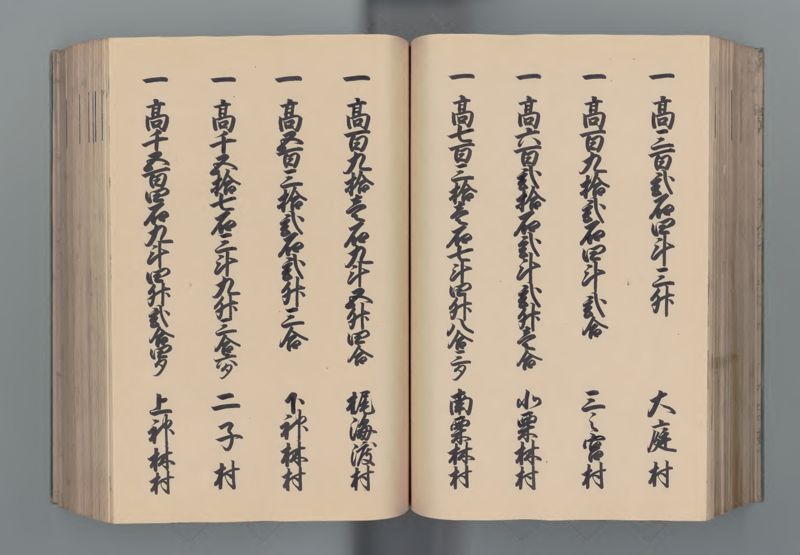 一 高三百弐石四斗三升 大庭村
一 高百九拾弐石四斗弐合 三之宮村
一 高六百弐拾石弐斗弐升壱合 北栗林村
一 高七百三拾壱石七斗四升八合三夕 南栗林村
一 高百九拾壱石九斗五升四合 梶海渡村
一 高五百三拾弐石弐升三合 下神林村
一 高千五拾七石三斗九升三合六夕 二子村
一 高千五百四石九斗四升弐合四夕 上神林村